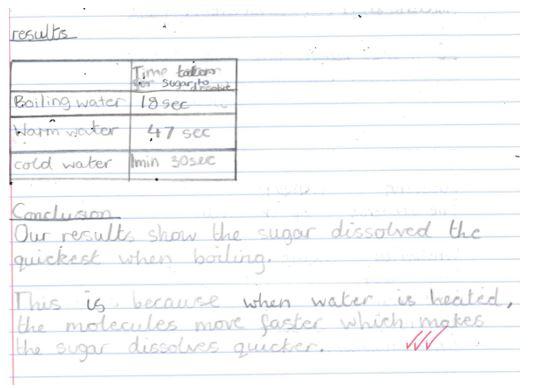 results
Time taken
for sugar to
dissolve
Boiling water 18 sec
Warm water 47 sec
cold water 1min 30sec
Conclusion
Our results show the sugar dissolved the
quickest when boiling.
This is because when water is heated,
the molecules move faster which makes
the sugar dissolves quicker.